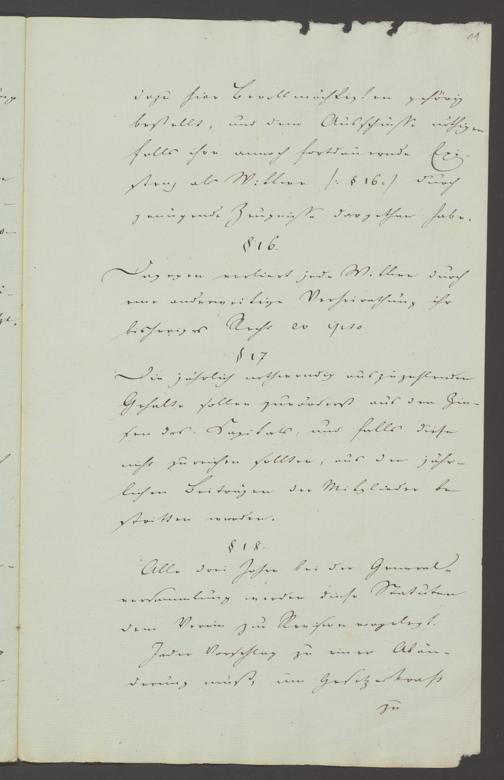 11
dazu hier Bevollmächtigten gehörig
bestellt, und dem Ausschusse nöthigen
falls ihre annoch fortdauernde Exi-
stenz als Wittwe /: § 16. :/ durch
genügende Zeugnisse dargethan habe.
§ 16.
Dagegen verliert jede Wittwe durch
eine anderweitige Verheirathung ihr
bisheriges Recht eo ipso.
§ 17
Die jährlich nothwendig auszuzahlenden
Gehalte sollen zuvörderst aus den Zin-
sen des Capitals, und falls diese
nicht zureichen sollten, aus den jähr-
lichen Beiträgen der Mitglieder be
stritten werden.
§ 18.
Alle drei Jahre bei der General-
versammlung werden diese Statuten
dem Verein zur Revision vorgelegt.
Jeder Vorschlag zu einer Abän-
derung muß, um Gesetzeskraft
zu